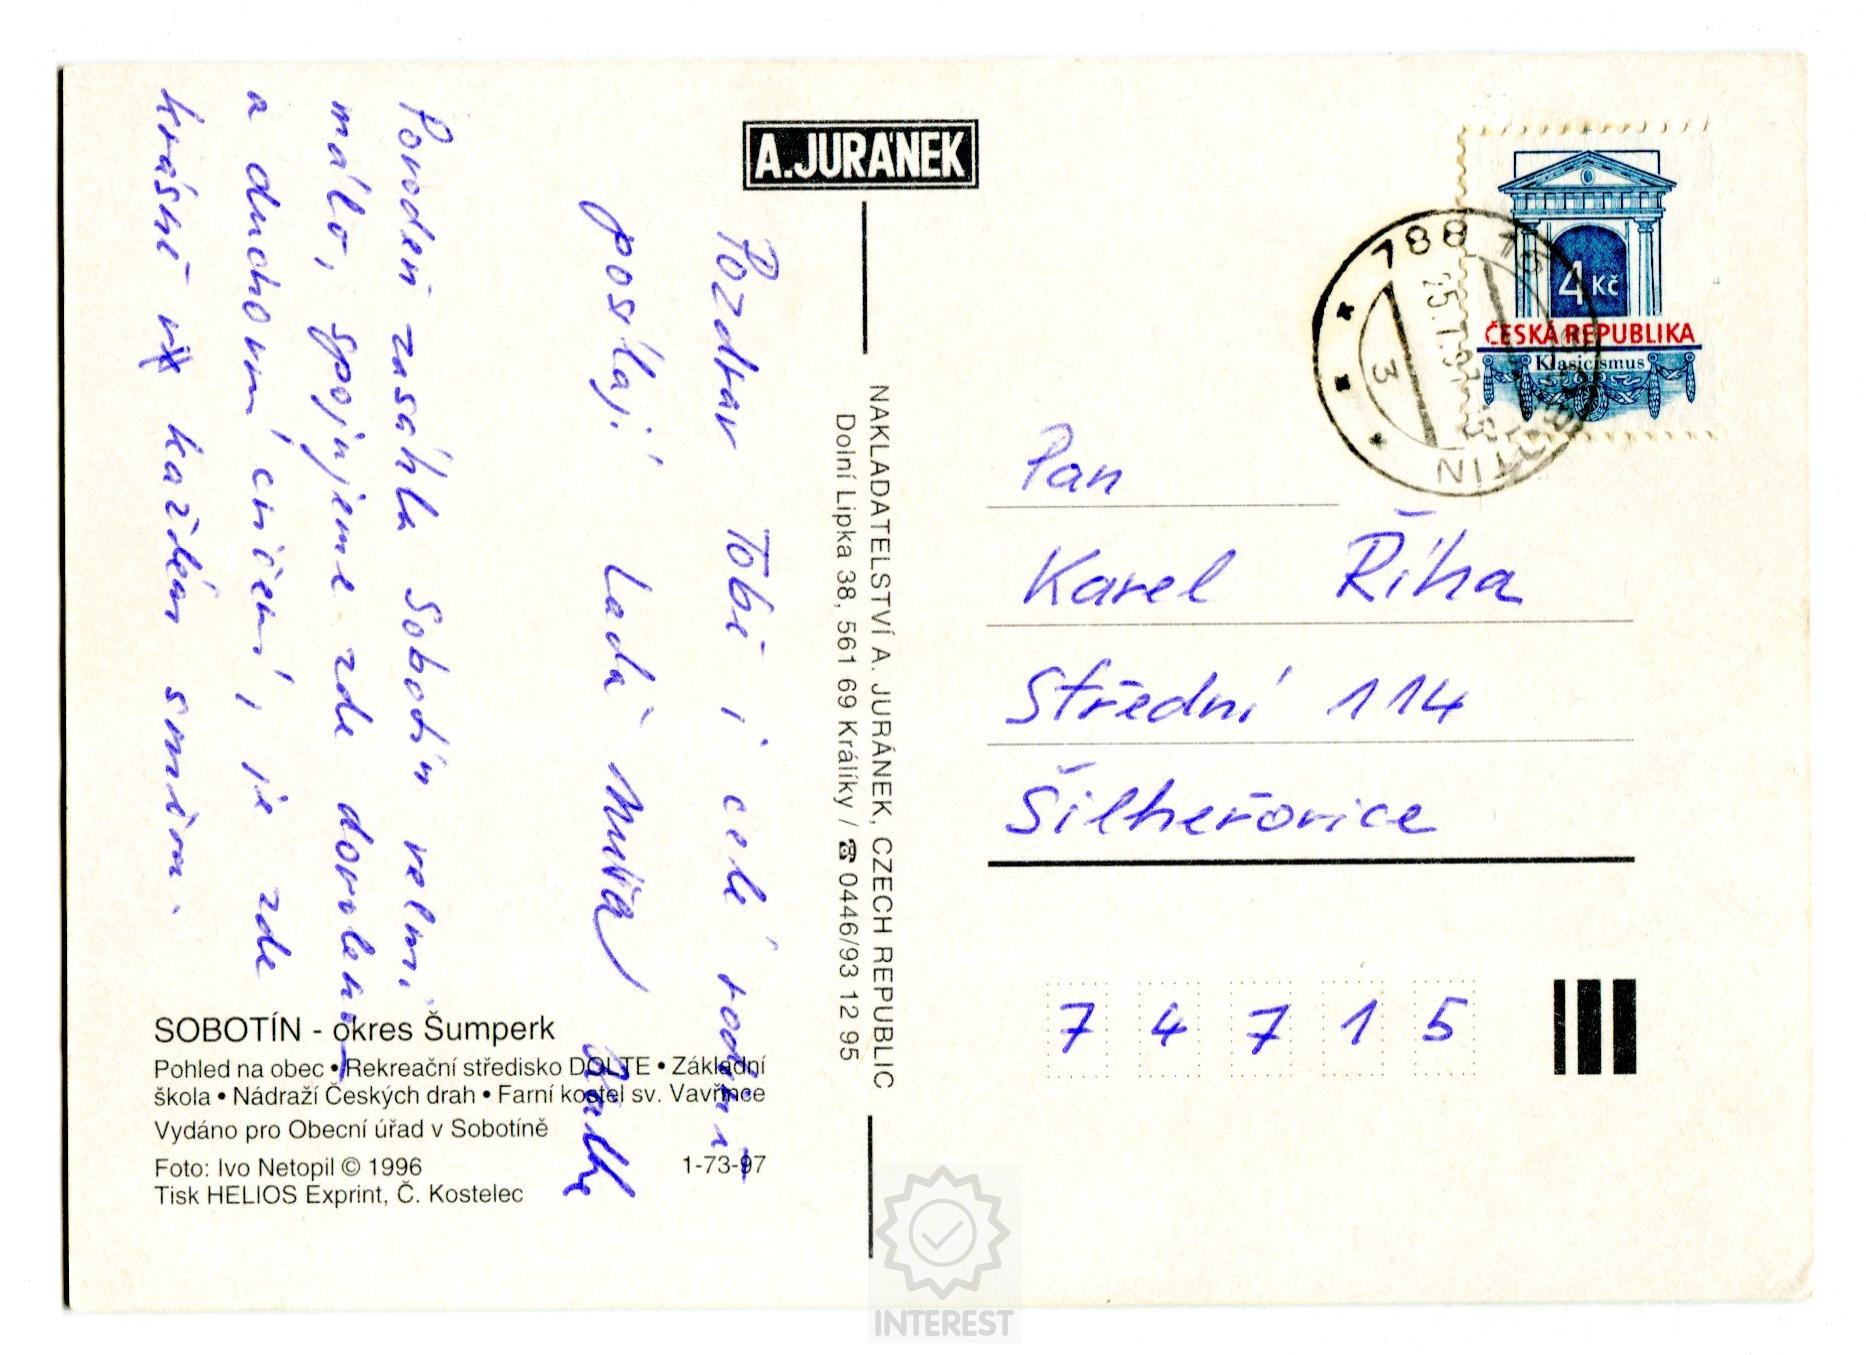 A. JURÁNEK
Pozdrav Tobě i celé rodině
posílají Laďa Míša
Povodeň zasáhla Sobotín velmi
málo, spojujeme zde dovolenou
a duchovní cvičení, je zde
krásně v každém směru.
SOBOTÍN - okres Šumperk
Pohled na obec • Rekreační středisko DOLTE • Základní
škola • Nádraží Českých drah • Farní kostel sv. Vavřince
Vydáno pro Obecní úřad v Sobotíně
Foto: Ivo Netopil © 1996
1-73-97
Tisk HELIOS Exprint, Č. Kostelec
NAKLADATELSTVÍ A. JURÁNEK, CZECH REPUBLIC
Dolní Lipka 38, 561 69 Králíky / ☎ 0446/93 12 95
4 Kč
ČESKÁ REPUBLIKA
Klasicismus
788 16
SOBOTÍN
3
Pan
Karel Říha
Střední 114
Šilheřovice
7 4 7 1 5
INTEREST